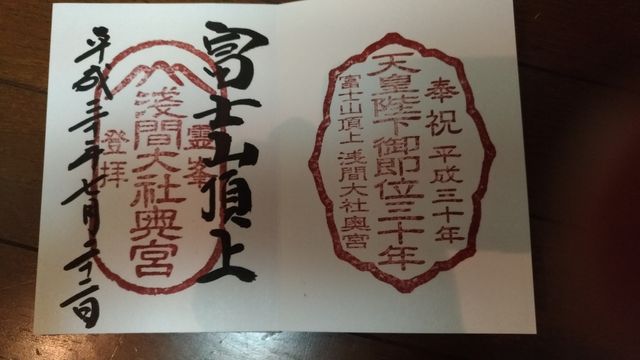 奉祝 平成三十年
天皇陛下御即位三十年
富士山頂上 浅間大社奥宮
富士山頂上
霊峯
浅間大社奥宮
登拝
平成三十年七月二十二日